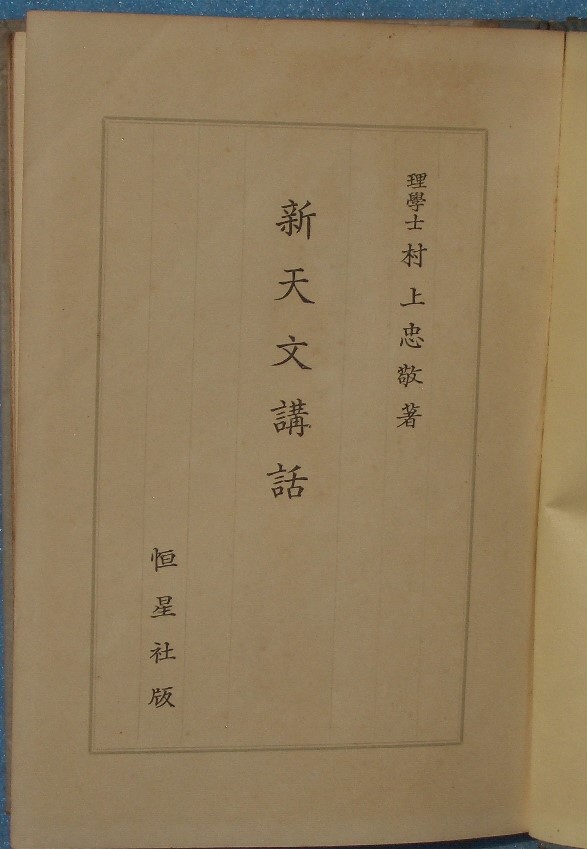 理學士 村上忠敬著
新天文講話
恒星社版